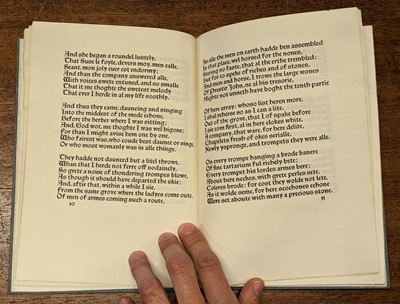 And she began a roundel lustely,
That Suse le foyle, devers moy, men calle,
Seant, mon joly cuer est endormy;
And than the company answered alle,
With voices swete entuned, and so smalle
That it me thoghte the swetest melody
That ever I herde in al my life soothly.
And thus they came, dauncing and singing
Into the middest of the mede echone,
Before the herber where I was sitting;
And, God wot, me thoghte I was wel bigone;
For than I might avise hem one by one,
Who fairest was, who coude best daunce or singe,
Or who most womanly was in alle thinge.
They hadde not daunced but a litel throwe,
Whan that I herde not ferre off sodainly,
So grete a noise of thondering trompes blowe,
As though it should have departed the skie;
And, after that, within a while I sie,
From the same grove where the ladyes come oute,
Of men of armes coming such a route,
10
As alle the men on earth hadde ben assembled
In that place, wel horsed for the nones,
Stering so faste, that al the erthe trembled:
But for to speke of riches and of stones,
And men and horse, I trowe the large wones
Of Prester John, ne al his tresorie,
Mighte not unneth have boght the tenth partie
Of here array: whoso list heren more,
I shal reherse so as I can a lite.
Out of the grove, that I of spake before
I sie com first, al in here clokes white,
A company, that ware, for here delite,
Chapelets fresh of okes serialle,
Newly ysproonge, and trompets they were alle.
On every trompe hanging a brode banere
Of fine tartarium ful richely bete;
Every trompet his lordes armes bere;
About here neckes, with grete perles sete,
Coleres brode; for cost they wolde not lete,
As it wolde seme, for here scochones echone
Were set aboute with many a precious stone.
11